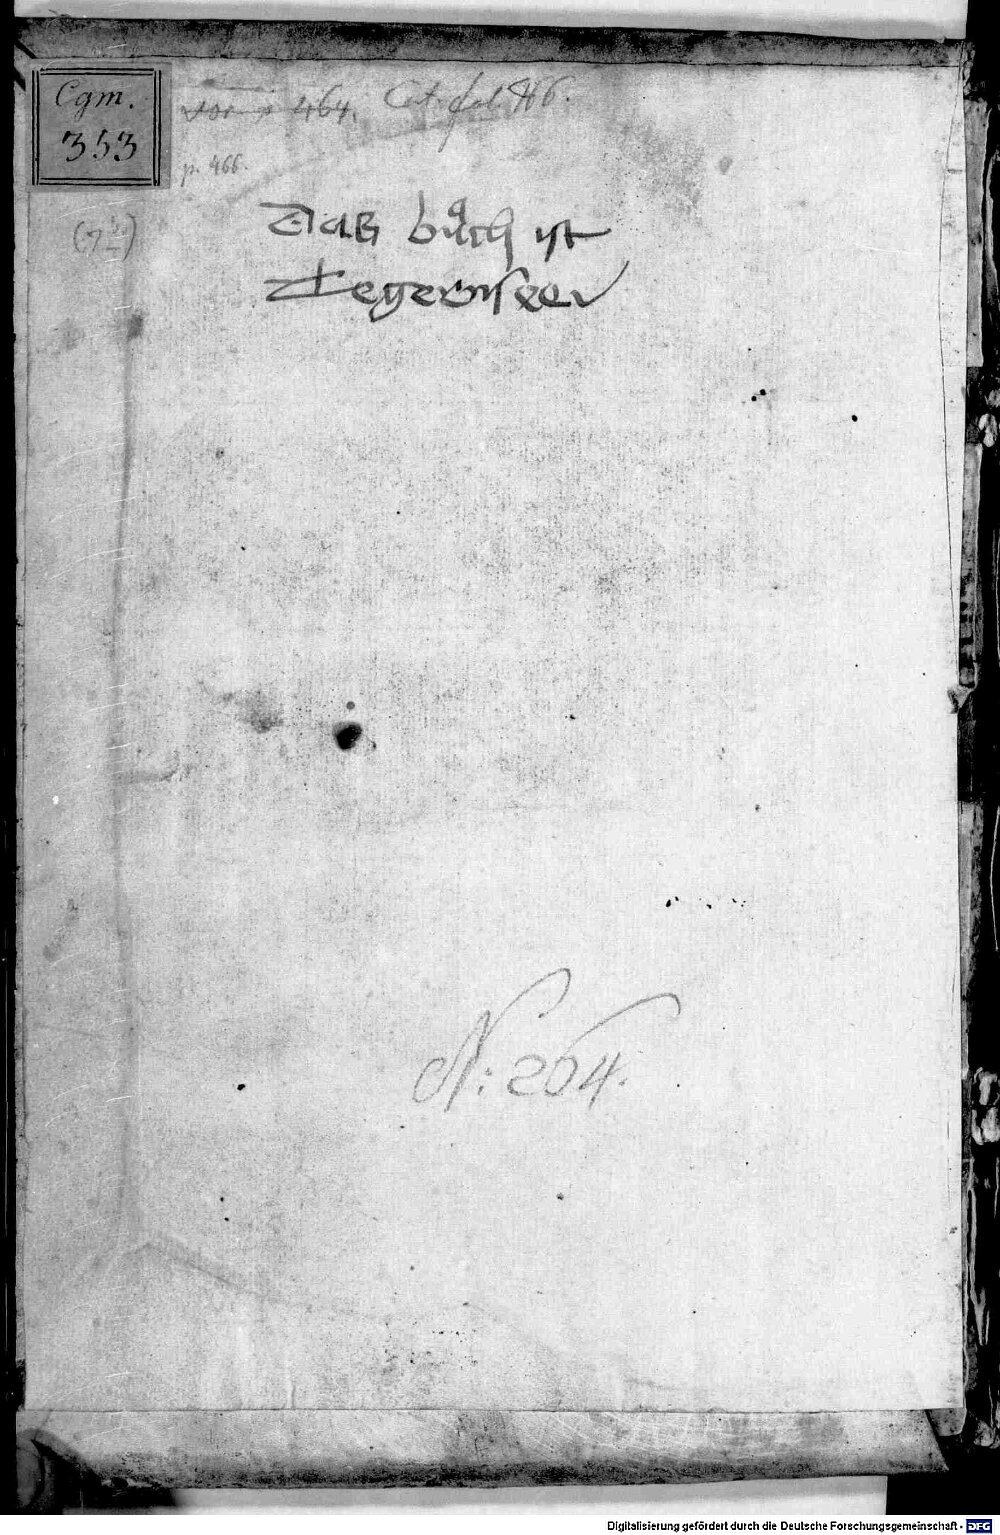 Cgm.
353
464. Cat. fol. 486.
p. 466.
Das bůch ist
Tegernseer
N: 204.
Digitalisierung gefördert durch die Deutsche Forschungsgemeinschaft - DFG